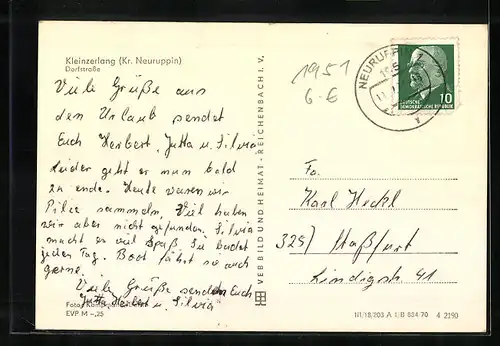 Kleinzerlang (Kr. Neuruppin)
Dorfstraße
Viele Grüße aus
dem Urlaub sendet
Euch Herbert, Jutta u. Silvia
Leider geht er nun bald
zu ende. Heute waren wir
Pilze sammeln, Viel haben
wir aber nicht gefunden. Silvia
macht es viel Spaß. Sie badet
jeden Tag. Boot fährt sie auch
gerne.
Viele Grüße senden Euch
Jutta Herbert u. Silvia
Foto:
EVP M -,25
VEB BILD UND HEIMAT · REICHENBACH I. V.
1951
6.-€
NEURUPPIN
DEUTSCHE
DEMOKRATISCHE REPUBLIK
10
Fa.
Karl Heckl
3257 Staßfurt
Lindigstr. 41
III/18/203 A 1/B 834/70 4 2190